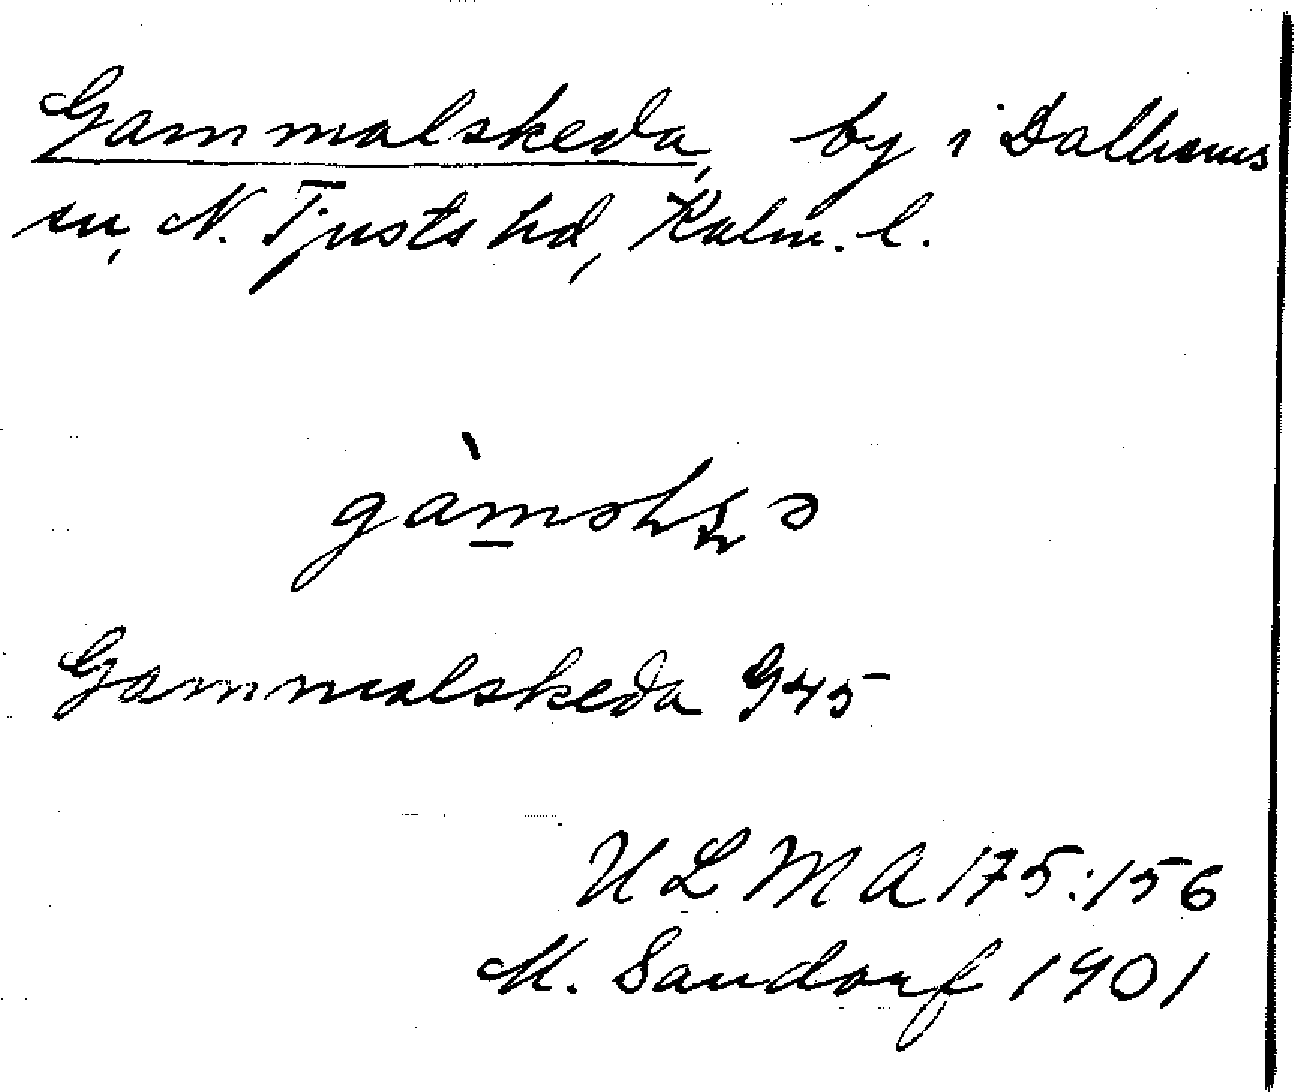 Gammalskeda, by i Dalhems
sn, N. Tjusts hd, Kalm. l.
Gammalskeda G45
ULMA 175:156
M. Sandorf 1901